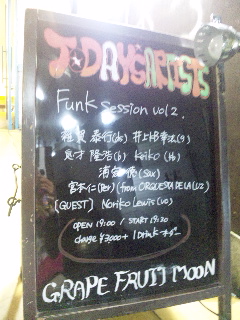 TODAY'S ARTISTS
Funk session vol 2.
泰行(ds) 井上 幸法(g)
隆浩(b) Keiko(Kb)
(Sax)
宮本仁(Per) (from ORQUESTA DE LA LUZ)
[GUEST] Noriko Lewis(vo)
OPEN 19:00 / START 19:30
charge ¥3000+ 1Drinkオーダー
GRAPE FRUIT MOON